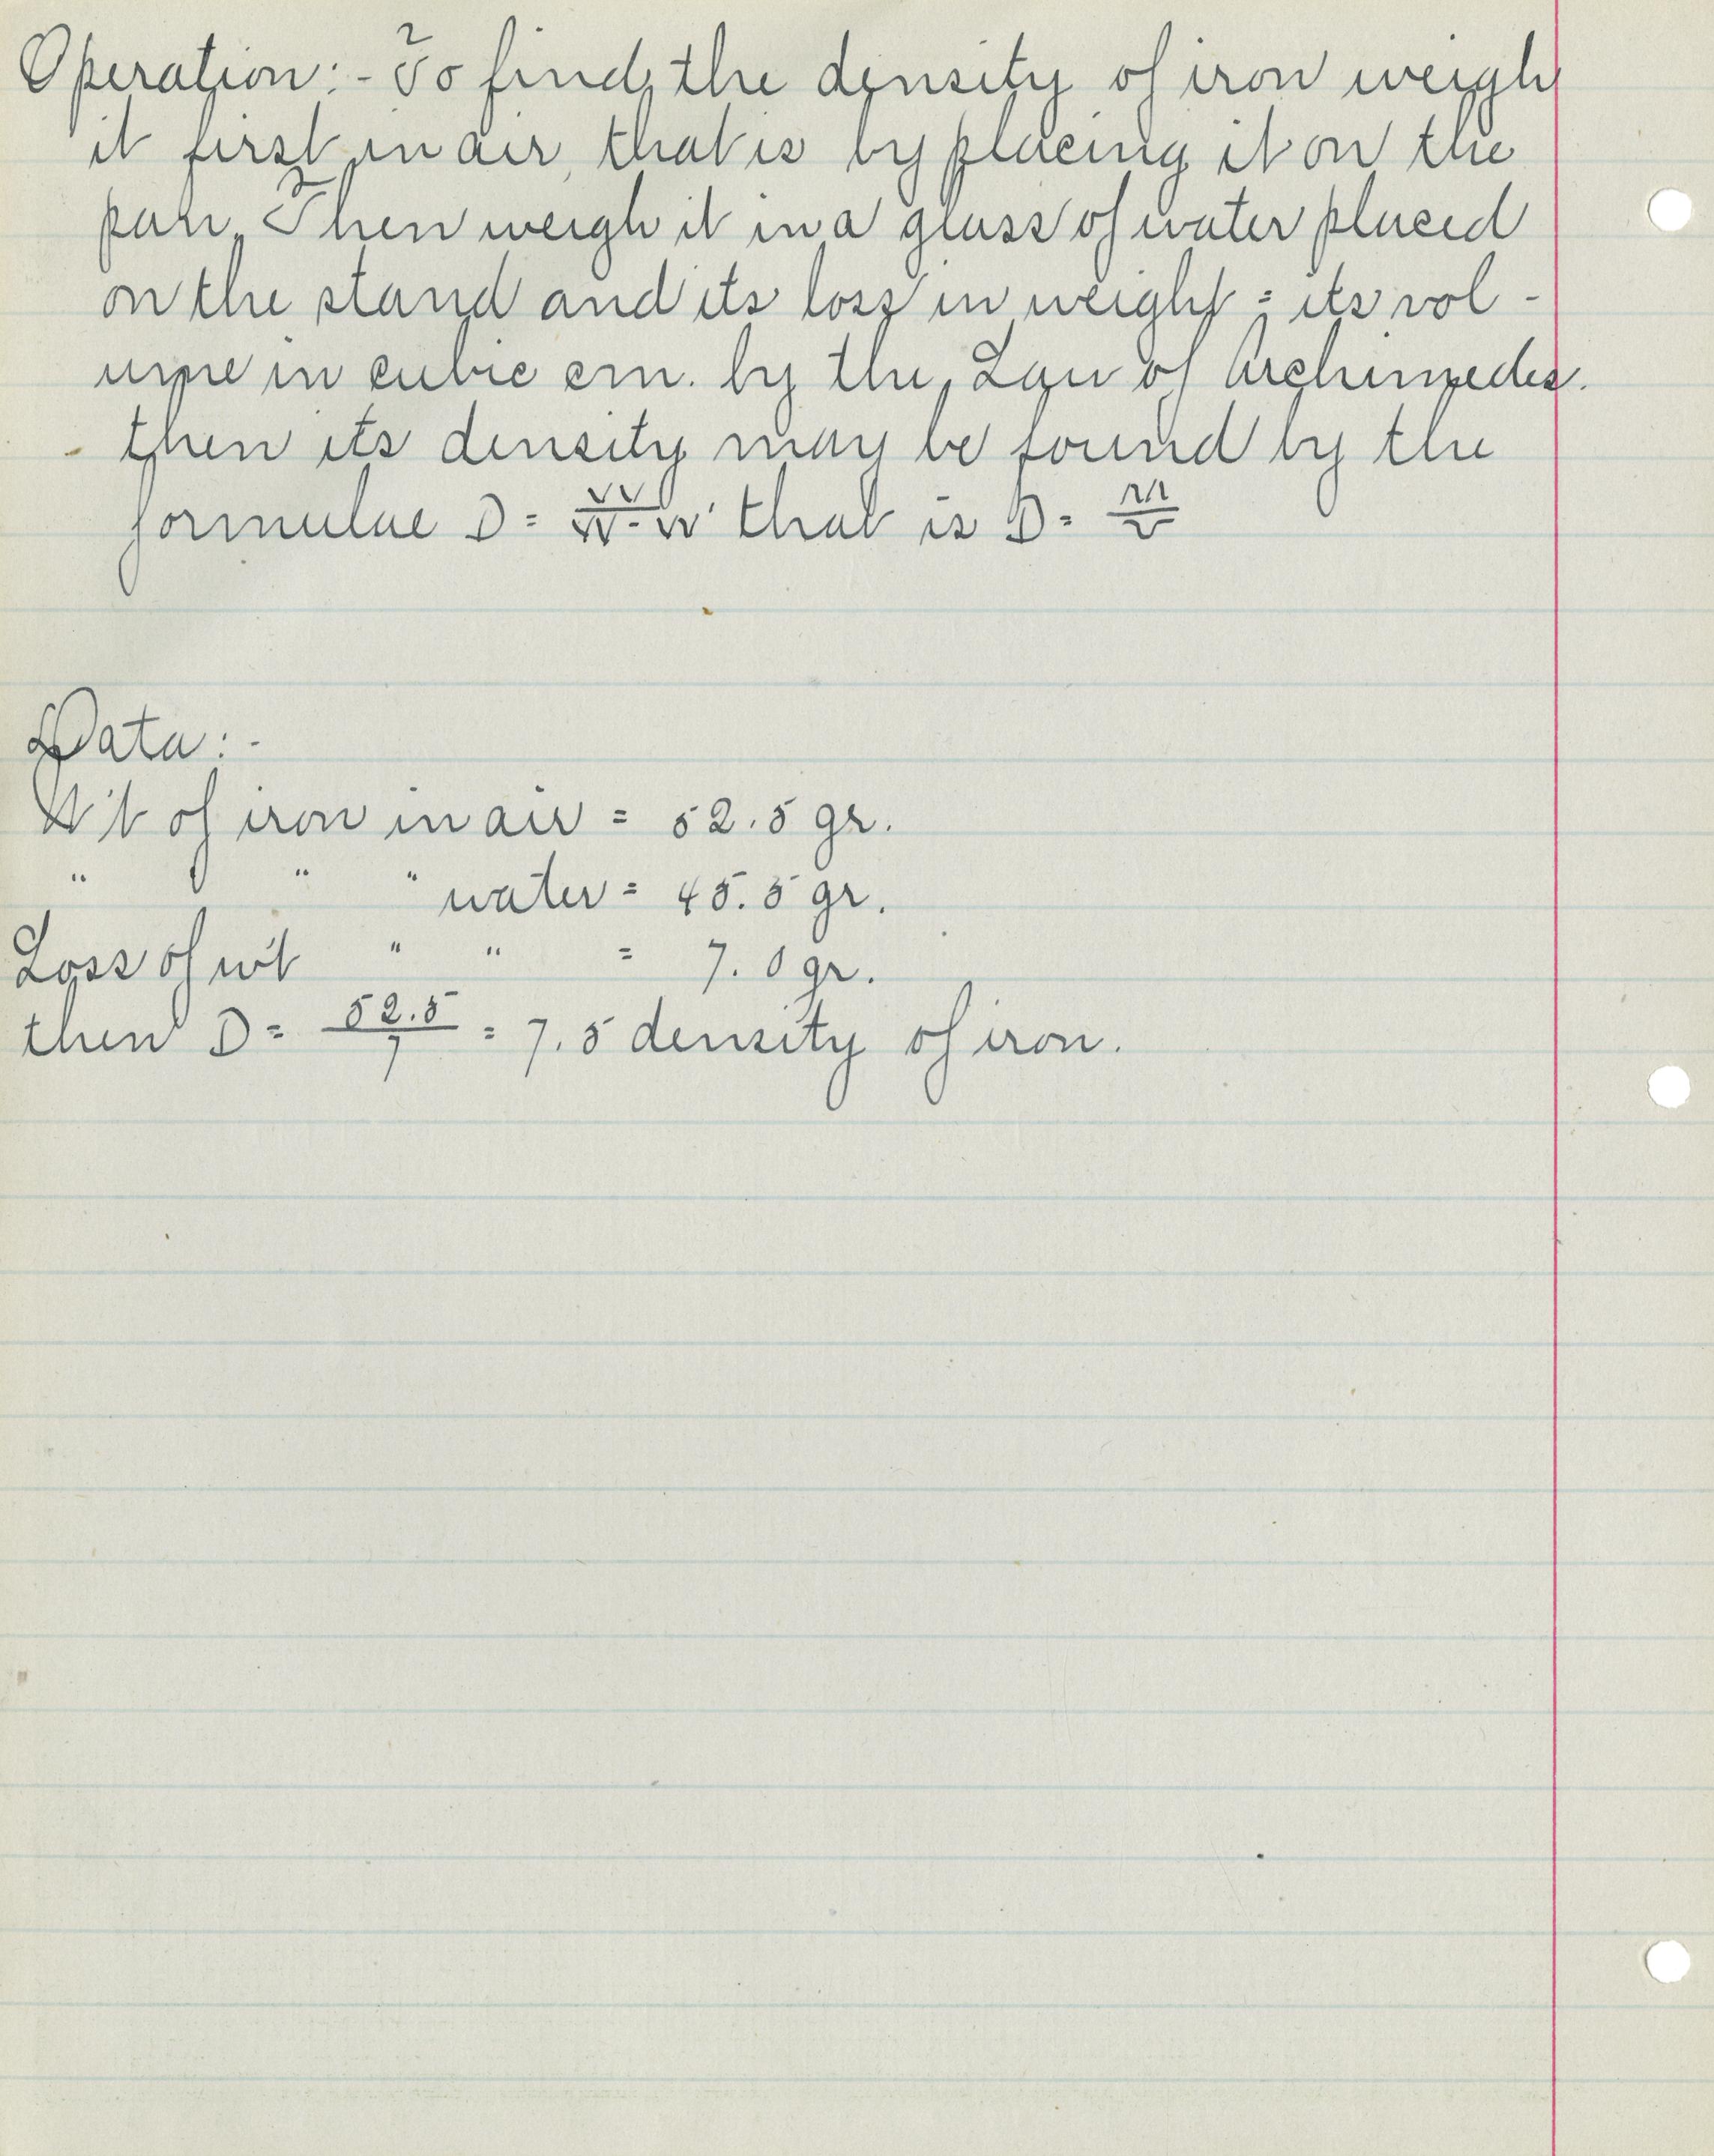 Operation:- To find the density of iron weigh
it first in air, that is by placing it on the
pan. Then weigh it in a glass of water placed
on the stand and its loss in weight = its vol-
ume in cubic cm. by the Law of Archimedes.
then its density may be found by the
formulae D = W/W-W' that is D = M/V
Data:-
W't of iron in air = 52.5 gr.
" " " water = 45.5 gr.
Loss of w't " " = 7.0 gr.
then D = 52.5/7 = 7.5 density of iron.